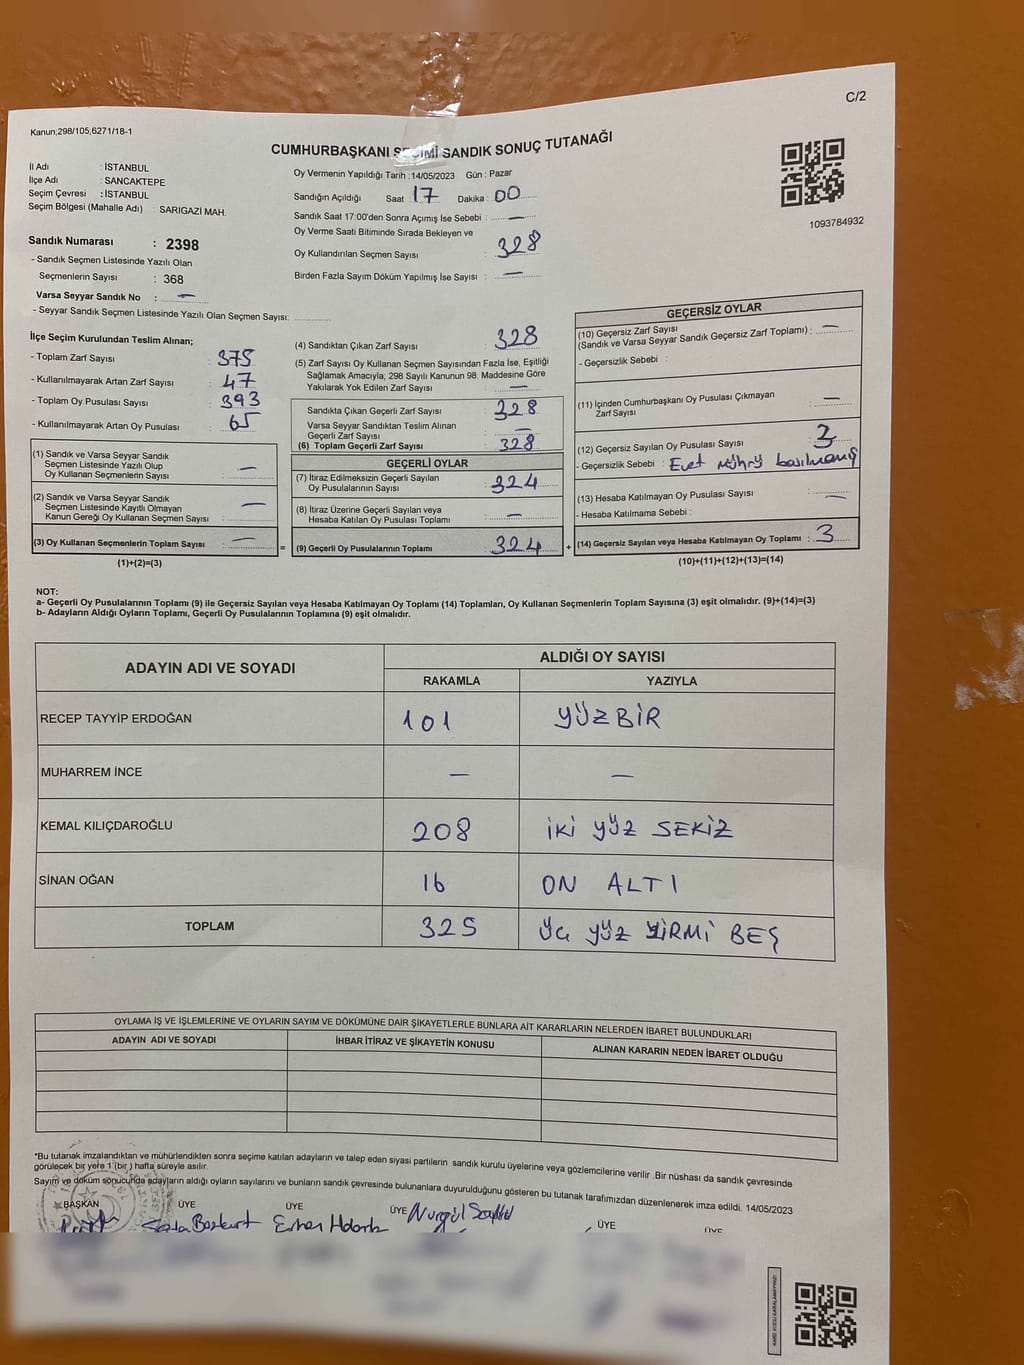 C/2
Kanun;298/105,6271/18-1
CUMHURBAŞKANI SEÇİMİ SANDIK SONUÇ TUTANAĞI
İl Adı : İSTANBUL
İlçe Adı : SANCAKTEPE
Seçim Çevresi : İSTANBUL
Seçim Bölgesi (Mahalle Adı) : SARIGAZİ MAH.
Sandık Numarası : 2398
- Sandık Seçmen Listesinde Yazılı Olan
Seçmenlerin Sayısı : 368
Varsa Seyyar Sandık No : —
- Seyyar Sandık Seçmen Listesinde Yazılı Olan Seçmen Sayısı:
Oy Vermenin Yapıldığı Tarih :14/05/2023 Gün : Pazar
Sandığın Açıldığı Saat : 17 Dakika : 00
Sandık Saat 17:00'den Sonra Açımış İse Sebebi : —
Oy Verme Saati Bitiminde Sırada Bekleyen ve
Oy Kullandırılan Seçmen Sayısı : 328
Birden Fazla Sayım Döküm Yapılmış İse Sayısı : —
1093784932
İlçe Seçim Kurulundan Teslim Alınan;
- Toplam Zarf Sayısı : 375
- Kullanılmayarak Artan Zarf Sayısı : 47
- Toplam Oy Pusulası Sayısı : 393
- Kullanılmayarak Artan Oy Pusulası : 65
(1) Sandık ve Varsa Seyyar Sandık
Seçmen Listesinde Yazılı Olup
Oy Kullanan Seçmenlerin Sayısı : —
(2) Sandık ve Varsa Seyyar Sandık
Seçmen Listesinde Kayıtlı Olmayan
Kanun Gereği Oy Kullanan Seçmen Sayısı : —
(3) Oy Kullanan Seçmenlerin Toplam Sayısı : —
(1)+(2)=(3)
=
(4) Sandıktan Çıkan Zarf Sayısı : 328
(5) Zarf Sayısı Oy Kullanan Seçmen Sayısından Fazla İse, Eşitliği
Sağlamak Amacıyla; 298 Sayılı Kanunun 98. Maddesine Göre
Yakılarak Yok Edilen Zarf Sayısı : —
Sandıkta Çıkan Geçerli Zarf Sayısı : 328
Varsa Seyyar Sandıktan Teslim Alınan
Geçerli Zarf Sayısı : —
(6) Toplam Geçerli Zarf Sayısı : 328
GEÇERLİ OYLAR
(7) İtiraz Edilmeksizin Geçerli Sayılan
Oy Pusulalarının Sayısı : 324
(8) İtiraz Üzerine Geçerli Sayılan veya
Hesaba Katılan Oy Pusulası Toplamı : —
(9) Geçerli Oy Pusulalarının Toplamı : 324
+
GEÇERSİZ OYLAR
(10) Geçersiz Zarf Sayısı
(Sandık ve Varsa Seyyar Sandık Geçersiz Zarf Toplamı) : —
- Geçersizlik Sebebi :
(11) İçinden Cumhurbaşkanı Oy Pusulası Çıkmayan
Zarf Sayısı : —
(12) Geçersiz Sayılan Oy Pusulası Sayısı : 3
- Geçersizlik Sebebi : Evet mührü basılmamış
(13) Hesaba Katılmayan Oy Pusulası Sayısı : —
- Hesaba Katılmama Sebebi :
(14) Geçersiz Sayılan veya Hesaba Katılmayan Oy Toplamı : 3
(10)+(11)+(12)+(13)=(14)
NOT:
a- Geçerli Oy Pusulalarının Toplamı (9) ile Geçersiz Sayılan veya Hesaba Katılmayan Oy Toplamı (14) Toplamları, Oy Kullanan Seçmenlerin Toplam Sayısına (3) eşit olmalıdır. (9)+(14)=(3)
b- Adayların Aldığı Oyların Toplamı, Geçerli Oy Pusulalarının Toplamına (9) eşit olmalıdır.
ADAYIN ADI VE SOYADI
ALDIĞI OY SAYISI
RAKAMLA YAZIYLA
RECEP TAYYİP ERDOĞAN 101 YÜZBİR
MUHARREM İNCE — —
KEMAL KILIÇDAROĞLU 208 İKİ YÜZ SEKİZ
SİNAN OĞAN 16 ON ALTI
TOPLAM 325 ÜÇ YÜZ YİRMİ BEŞ
OYLAMA İŞ VE İŞLEMLERİNE VE OYLARIN SAYIM VE DÖKÜMÜNE DAİR ŞİKAYETLERLE BUNLARA AİT KARARLARIN NELERDEN İBARET BULUNDUKLARI
ADAYIN ADI VE SOYADI İHBAR İTİRAZ VE ŞİKAYETİN KONUSU ALINAN KARARIN NEDEN İBARET OLDUĞU
*Bu tutanak imzalandıktan ve mühürlendikten sonra seçime katılan adayların ve talep eden siyasi partilerin sandık kurulu üyelerine veya gözlemcilerine verilir .Bir nüshası da sandık çevresinde
görülecek bir yere 1 (bir ) hafta süreyle asılır.
Sayım ve döküm sonucunda adayların aldığı oyların sayılarını ve bunların sandık çevresinde bulunanlara duyurulduğunu gösteren bu tutanak tarafımızdan düzenlenerek imza edildi. 14/05/2023
BAŞKAN ÜYE ÜYE ÜYE ÜYE ÜYE
Bozkurt Nurgül